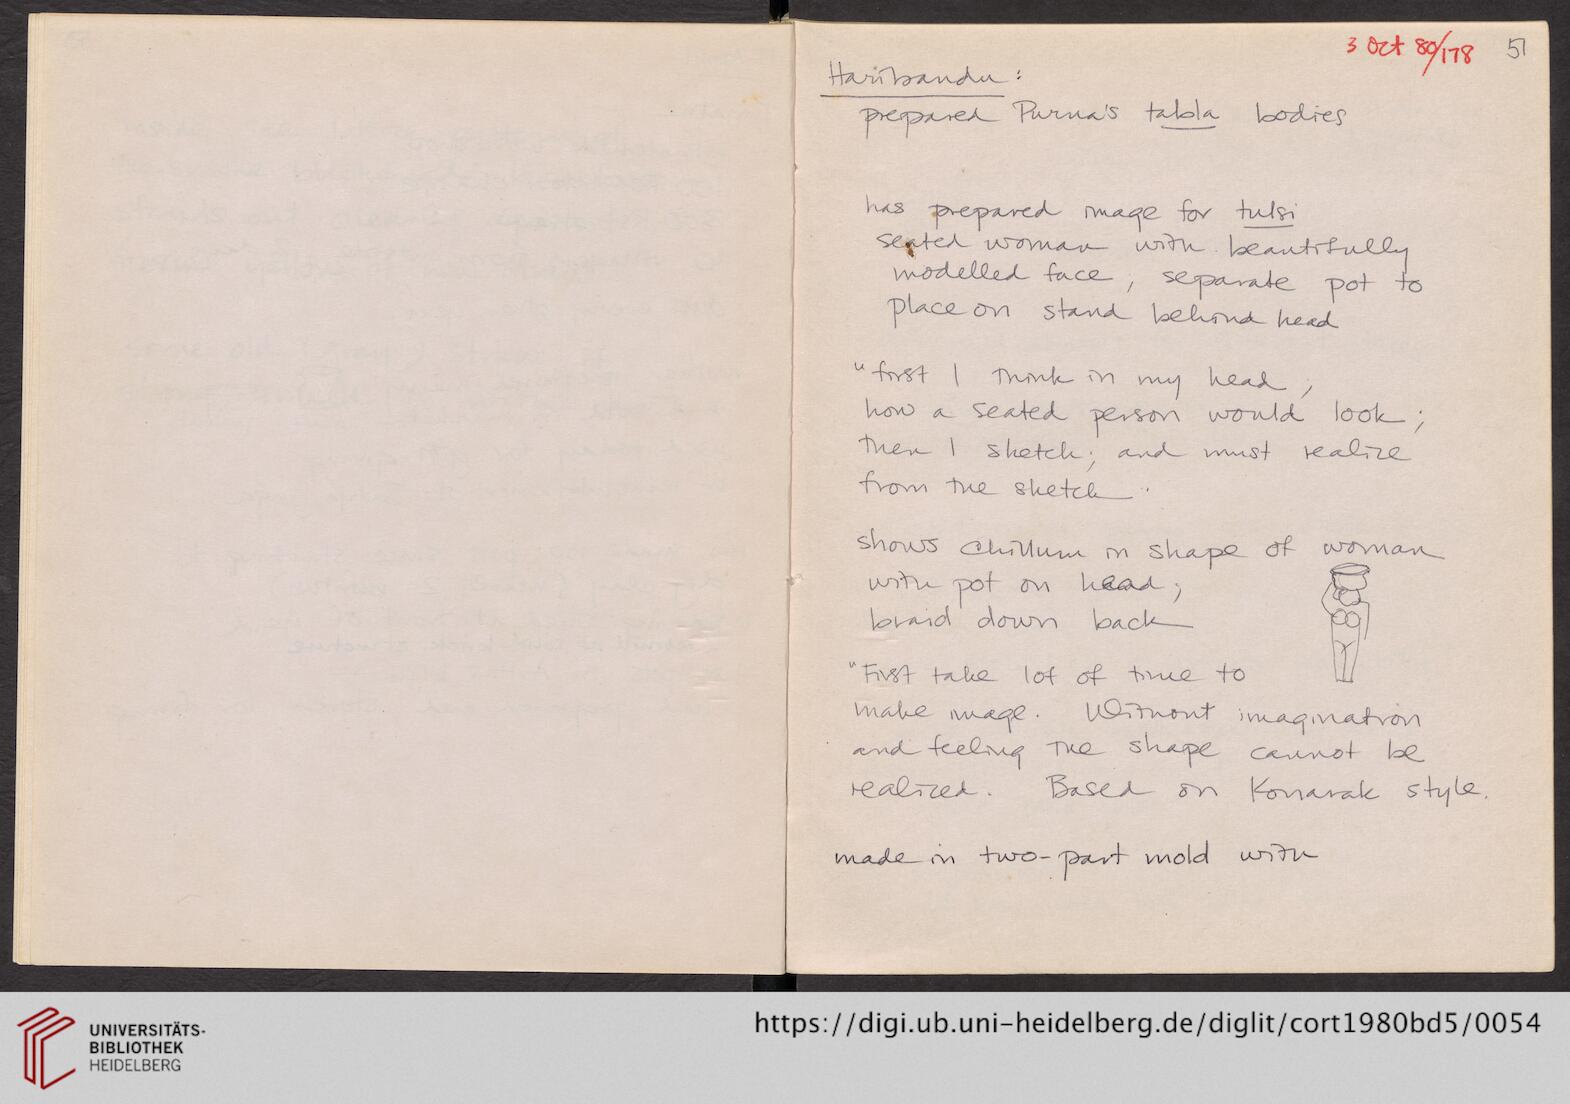 3 Oct 80/178
51
Haribandu:
prepared Purna's tabla bodies
has prepared image for tulsi
seated woman with beautifully
modelled face, separate pot to
place on stand behind head
"first I think in my head,
how a seated person would look;
then I sketch; and must realize
from the sketch"
shows chillum in shape of woman
with pot on head;
braid down back
"First take lot of time to
make image. Without imagination
and feeling the shape cannot be
realized. Based on Konarak style.
made in two-part mold with
UNIVERSITÄTS-
BIBLIOTHEK
HEIDELBERG
https://digi.ub.uni-heidelberg.de/diglit/cort1980bd5/0054